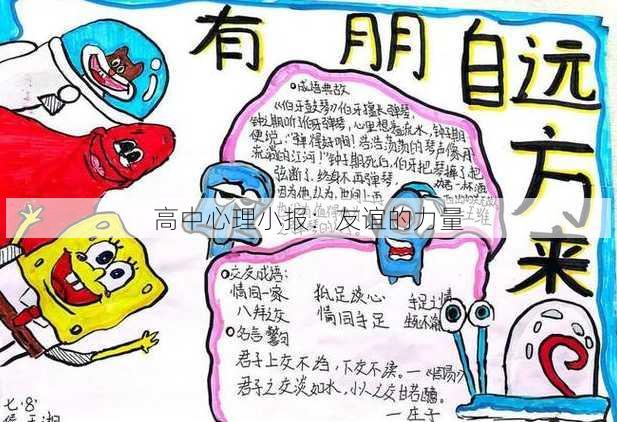 有朋自远方来
成语典故
《伯牙鼓琴》伯牙擅长弹琴,
钟子期听伯牙弹琴,心里想着流水,钟子期
便说:"弹得好啊!浩浩荡荡的琴声像用
流淌的江河!"钟子期死后,伯牙把琴摔了把
弦断了,终身不再弹琴,
因为他认为,世间上再
高中心理小报:友谊的力量
王维
交友成语:
情同一家 抵足谈心 手足之情
八拜之交 情同手足
名言警句
君子上交不谄,下交不渎。—《周易》
君子之交淡如水,小人之交甘若醴。
—庄子
七.8